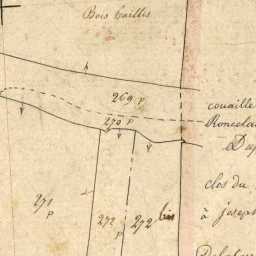 Bois taillis
269 p
270 p
271 p
272 p
272 bis
couaille
à joseph
clos du